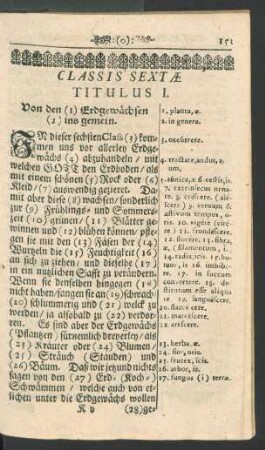 :(o):
151
CLASSIS SEXTÆ
TITULUS I.
Von den (1) Erdgewächsen
(2) ins gemein.
IN dieser sechsten Classi (3) kom-
men uns vor allerley Erdge-
wächs (4) abzuhandeln / mit
welchen GOTT den Erdboden / als
mit einem schönen (5) Rock oder (6)
Kleid / (7) auswendig gezieret. Da-
mit aber diese (8) wachsen / sonderlich
zur (9) Frühlings- und Sommers-
zeit (10) grünen / (11) Blätter ge-
winnen und (12) blühen können / pfle-
gen sie mit den (13) Fäsen der (14)
Wurtzeln die (15) Feuchtigkeit (16)
an sich zu ziehen / und dieselbe (17)
in ein nutzlichen Safft zu verändern.
Wenn sie denselben hingegen (18)
nicht haben / fangen sie an (19) schwach /
(20) schlimmerig und (21) welck zu
werden / ja alsobald zu (22) verdor-
ren. Es sind aber der Erdgewächs
(Pflantzen) fürnemlich dreyerley / als
(23) Kräuter oder (24) Blumen /
(25) Sträuch (Stauden) und
(26) Bäum. Daß wir jetzund nichts
sagen von den (27) Erd- (Koch-)
Schwämmen / welche auch von et-
lichen unter die Erdgewächs wollen
K v
(28) ge-
1. planta, æ.
2. in genere.
3. occurrere.
4. tractare, andus, a,
um.
5. tunica, æ 6. vestis, is.
7. extrinsecus orna-
re. 8. crescere.
9. vernum &
æstivum tempus, o-
ris. 10. virere
11. frondescere.
12. florere. 13. fibra,
æ,
14. radix, icis. 15. hu-
mor, oris. 16. imbibe-
re. 17. in succum
convertere. 18. ca-
rere.
19. languescere.
20. flaccescere.
21. marcescere.
22. arescere.
23. herba, æ.
24. flos, oris.
25. frutex, icis.
26. arbor, is.
27. fungus (i) terræ.